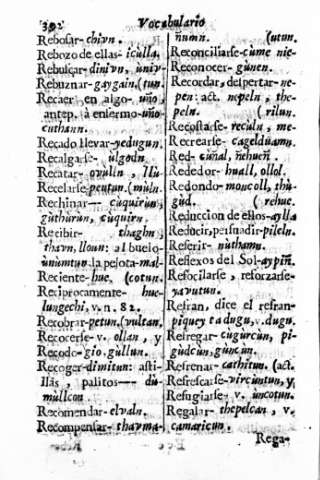 392 Vocabulario
Rebosar-chivn.
Rebozo de ellas-iculla.
Rebulçar-dinivn, univ-
Rebuznar-gaygain.(tun.
Recaer en algo-uño,
antep. à enfermo-uño
cuthann.
Recado llevar-yedugun.
Recalgarse- ulgodn
Recatar- ovulln, llu
Recelarse-peutun.(muln.
Rechinar-- cuquirun,
guthurun, cuquirn.
Recibir- thaghn,
thavn, lloun: al buelo-
unumtun la pejota-mal-
Reciente-hue. (cotun.
Reciprocamente- hue-
lungechi, v. n. 82.
Recobrar-petun.(vultan.
Recocerse-v. ollan, y
Recodo-gio.gullun.
Recoger-dimitun: asti-
llas, palitos-- du-
mullcon
Recomendar-elvaln.
Recompensar-thavma-
ñumn. (utun.
Reconciliarse-cume nie-
Reconocer-gunen.
Recordar, despertar-ne-
pen: act. nepeln, the-
peln. (rilun.
Recostarse-reculn, me-
Recrearse-cagelduamn.
Red-cuñal, ñehueñ.
Rededor-huall, ollol.
Redondo-moncoll, thu-
gud. (rehue.
Reduccion de ellos-aylla
Reducir, persuadir-pileln.
Referir-nuthamn.
Reflexos del Sol-aypiñ.
Refocilarse, reforzarse-
yavutun.
Refran, dice el refran-
piquey ta dugu, v.dugu.
Refregar-cugurcun, pi-
gudcun, guncun.
Refrenar-cathitun. (act.
Refrescarse-vircuntun, y
Refugiarse-v. uncotun.
Regalar-thepelcan, v.
camaricun.
Rega-